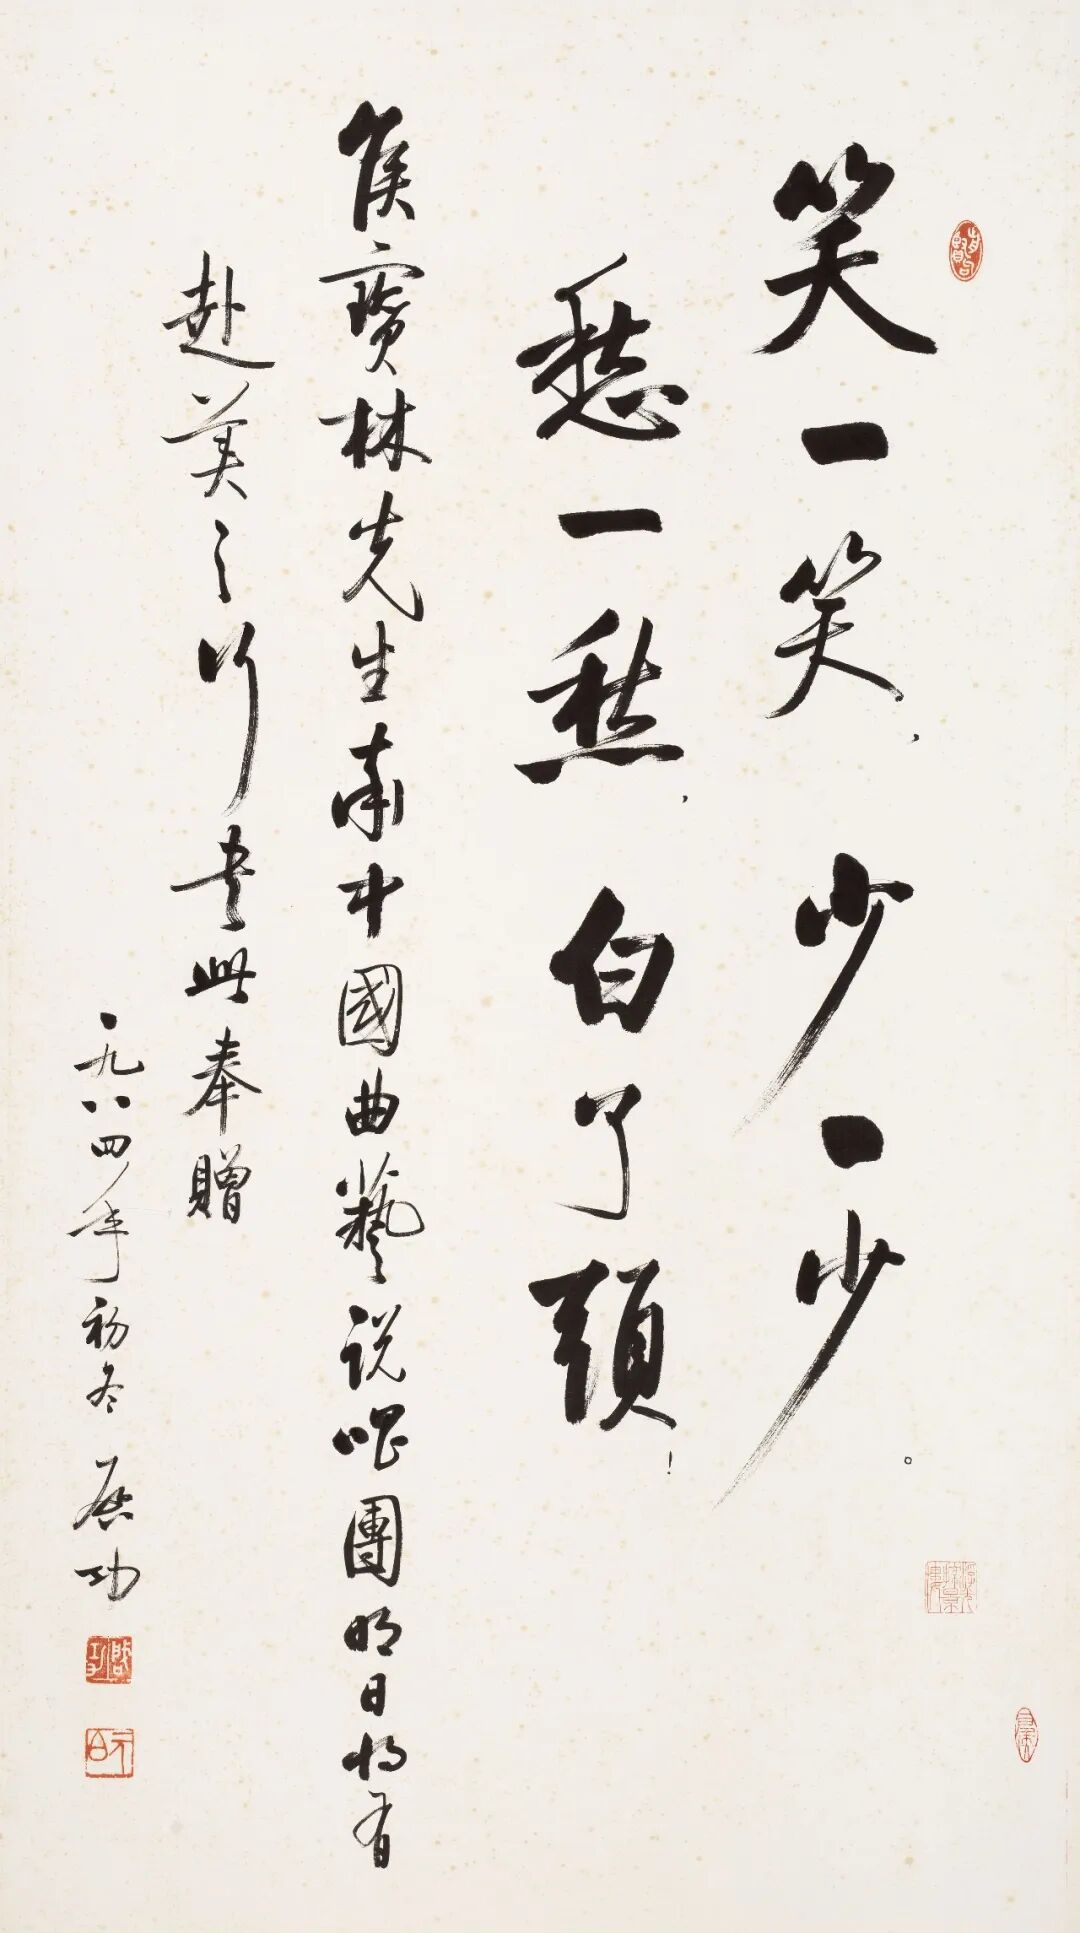 笑一笑，少一少。
愁一愁，白了頭！
侯寶林先生率中國曲藝説唱團明日将有
赴美之行書此奉贈
一九八四年初冬 启功
啓功
元白